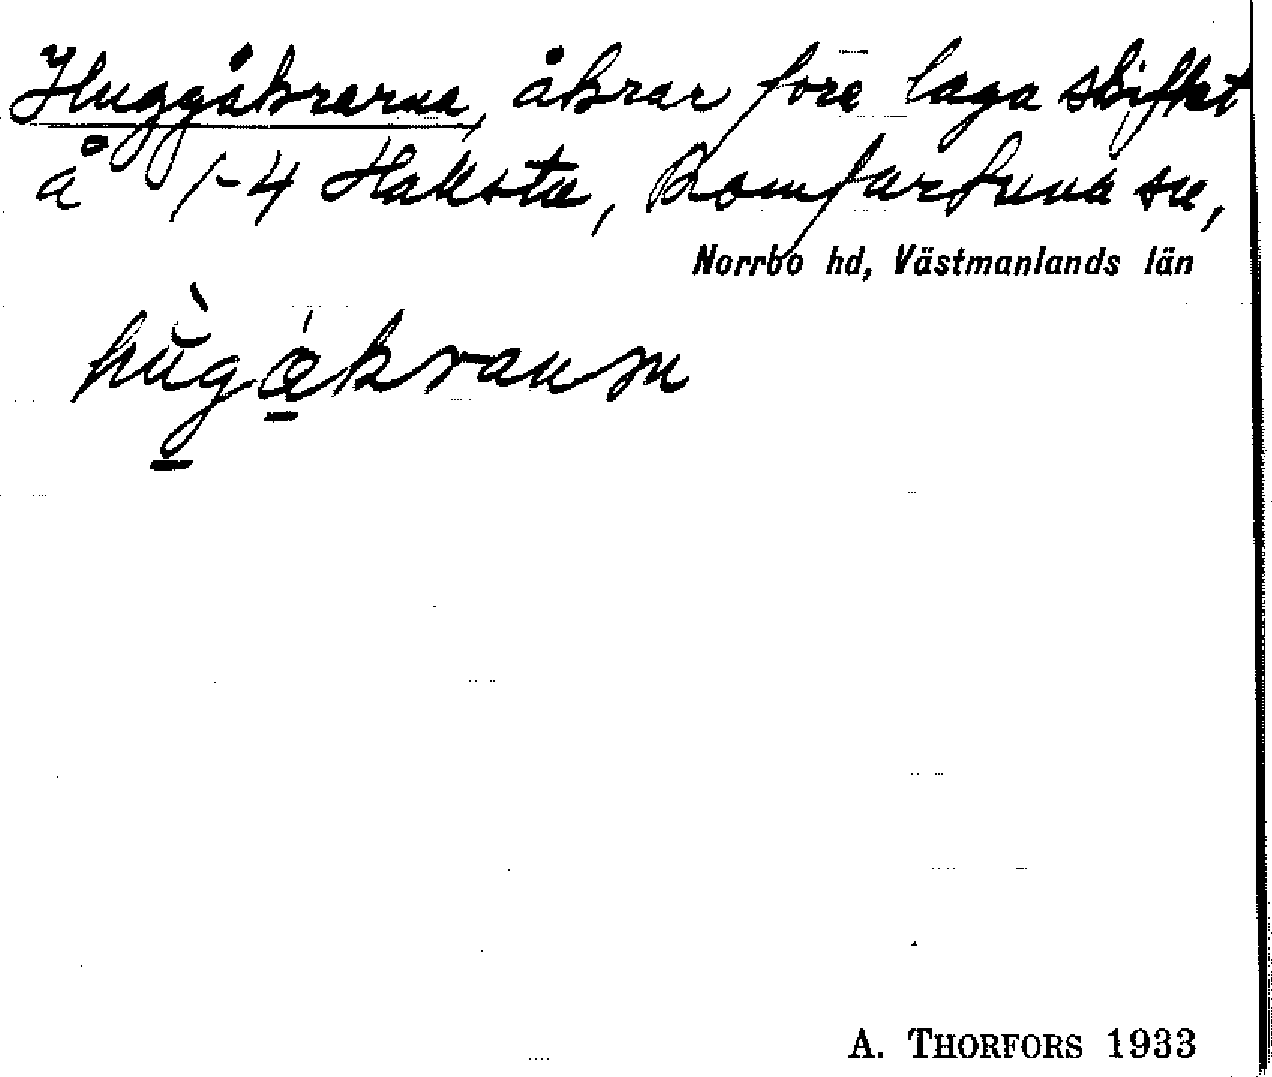 Huggåkrarna, åkrar före laga skiftet
å 1-4 Haksta, Romfartuna sn,
Norrbo hd, Västmanlands län
A. THORFORS 1933